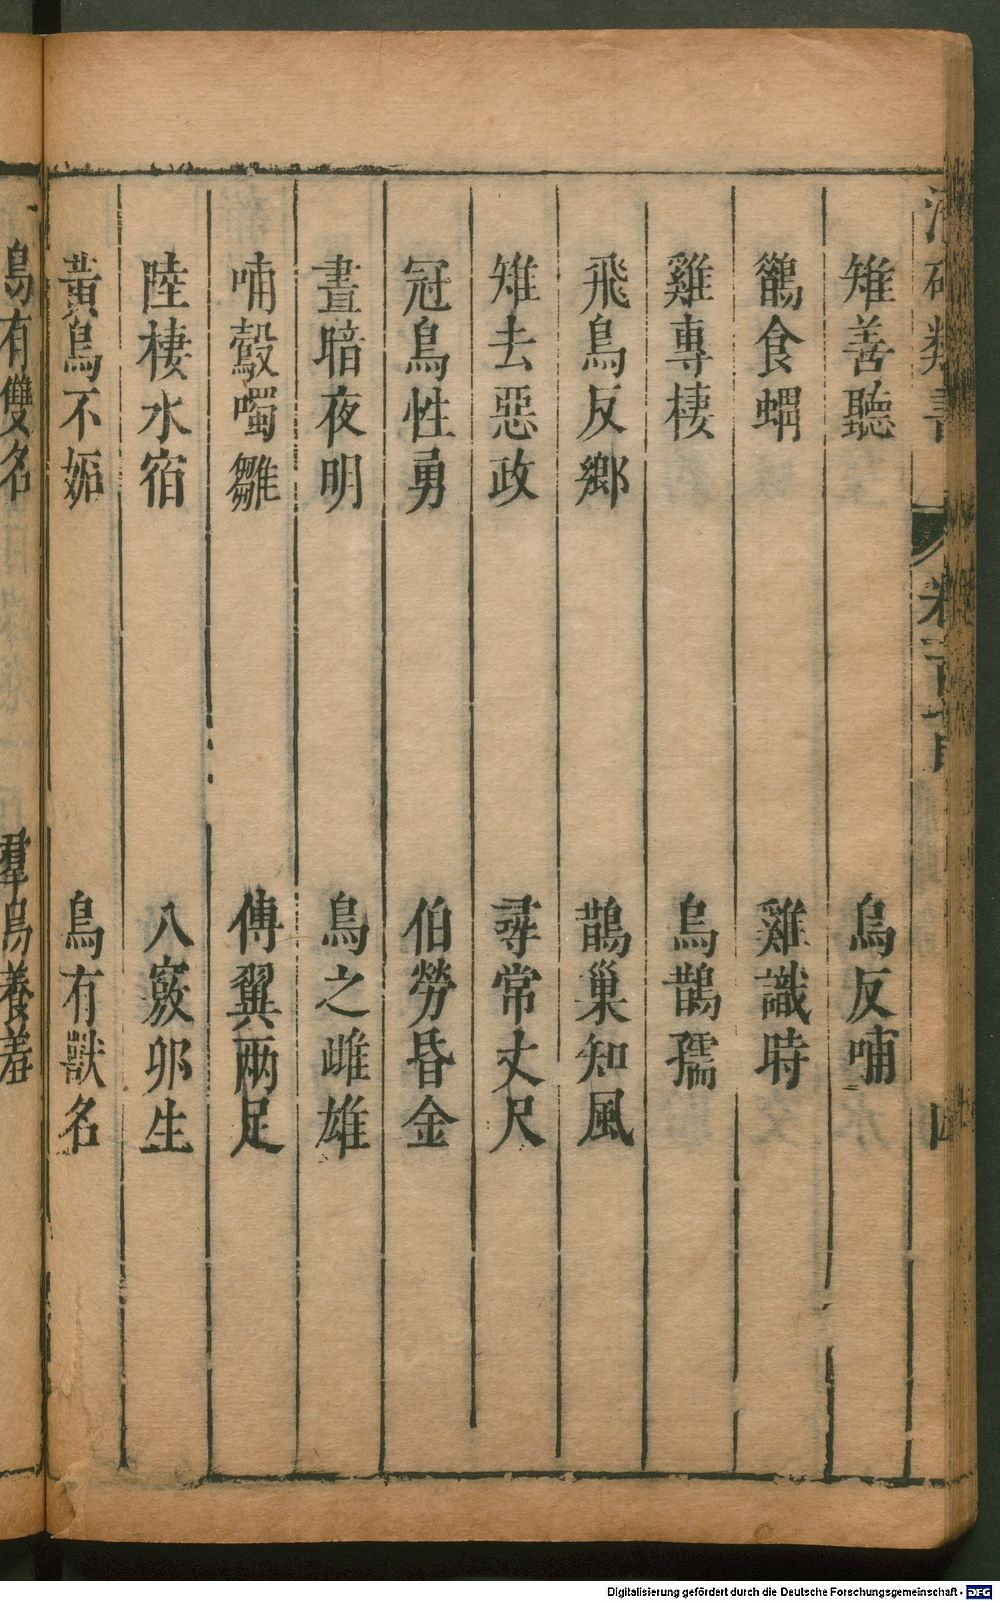 雉善聽　烏反哺
鶴食蝟　雞識時
雞專棲　烏鵲孺
飛鳥反鄉　鵲巢知風
雉去惡政　尋常丈尺
冠鳥性勇　伯勞昏金
晝暗夜明　鳥之雌雄
哺鷇噣雛　傅翼兩足
陸棲水宿　八竅卵生
黃鳥不妬　鳥有獸名
鳥有雙名　羣鳥養羞
類書
四
Digitalisierung gefördert durch die Deutsche Forschungsgemeinschaft - DFG